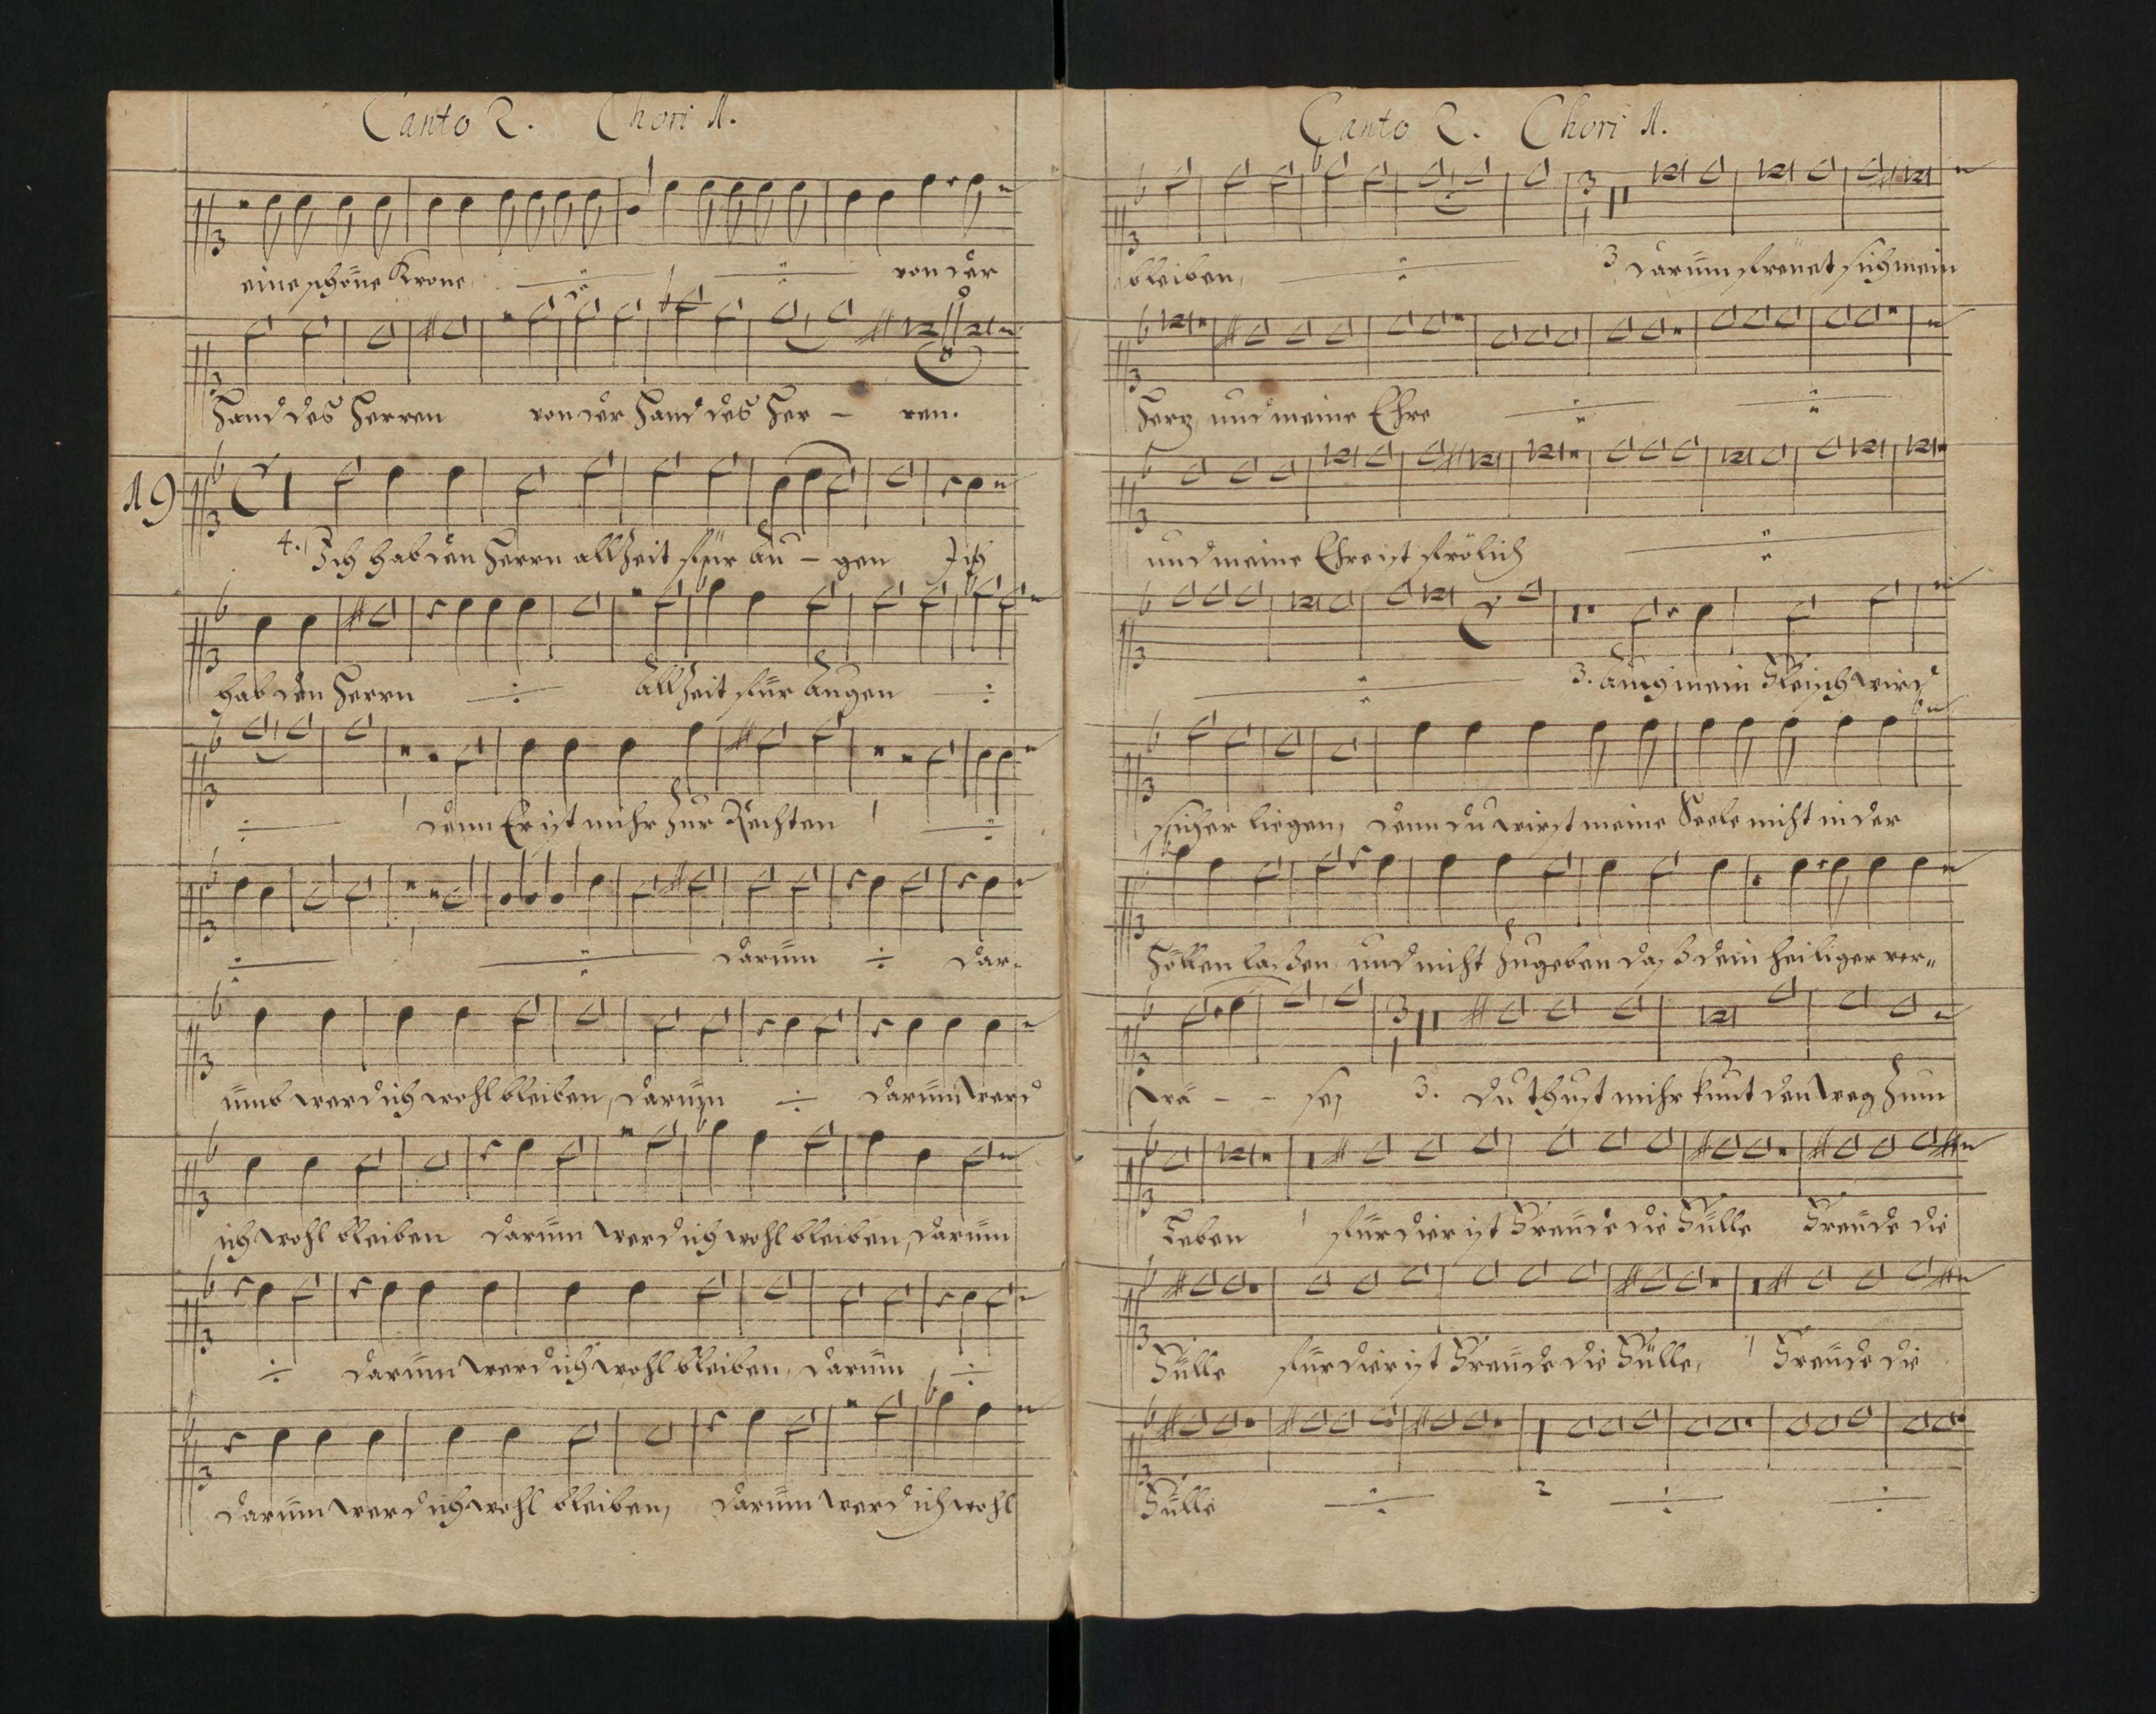 Canto 2. Chori 1.
eine schöne Krone von der
Hand des Herren von der Hand des Her - ren.
19
4. Ich hab den Herrn allzeit für Au - gen Ich
hab den Herrn allzeit für Augen
denn Er ist mihr zur Rechten
darům dar-
ůmb werd ich wohl bleiben, darům darům werd
ich wohl bleiben darům werd ich wohl bleiben, darům
darům werd ich wohl bleiben, darům
darům werd ich wohl bleiben, darům werd ich wohl
Canto 2. Chori 1.
bleiben, 3 darům freůet sich mein
Herz, und meine Ehre
und meine Ehre ist frölich
3. Auch mein Fleisch wird
sicher liegen, denn du wirst meine Seele nicht in der
Höllen laßen und nicht zugeben daß dein heiliger ver-
we - - se, 3. du thust mihr kunt den weg zum
Leben für dier ist Freůde die Fülle Freůde die
Fülle für dier ist Freůde die Fülle, Freůde die
Fülle 2